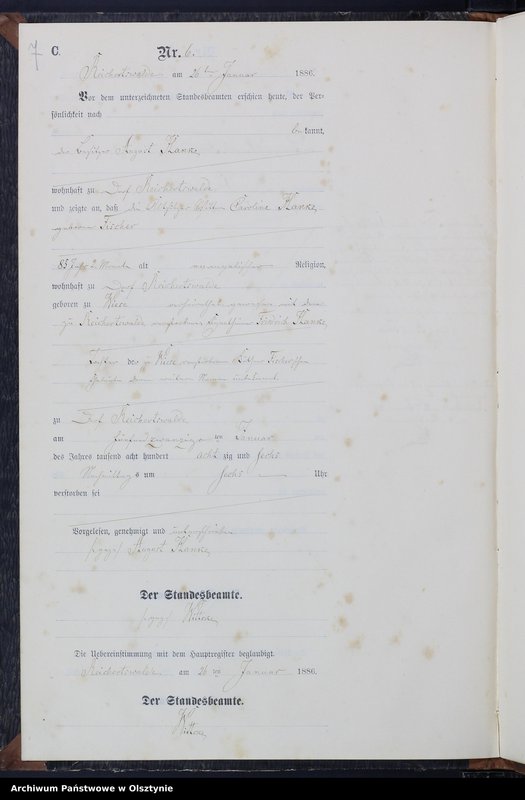 7
C.
Nr. 6.
Reichertswalde am 26ten Januar 1886.
Vor dem unterzeichneten Standesbeamten erschien heute, der Per-
sönlichkeit nach
bekannt,
der Besitzer August Kanke,
wohnhaft zu Dorf Reichertswalde
und zeigte an, daß die Caroline Kanke,
geborne Fischer
85 Jahr 2 Monate alt evangelischer Religion,
wohnhaft zu Dorf Reichertswalde
geboren zu Wiese verheirathet gewesen mit dem
zu Reichertswalde verstorbenen Eigenthümer Friedrich Kanke,
Tochter des zu Wiese verstorbenen Fischer
dem Namen unbekannt.
zu Dorf Reichertswalde
am fünfundzwanzigsten Januar
des Jahres tausend acht hundert achtzig und sechs
Nachmittags um sechs Uhr
verstorben sei
Vorgelesen, genehmigt und unterschrieben
gez. August Kanke
Der Standesbeamte.
gez. Wittcke
Die Uebereinstimmung mit dem Hauptregister beglaubigt.
Reichertswalde am 26ten Januar 1886.
Der Standesbeamte.
Wittcke
Archiwum Państwowe w Olsztynie